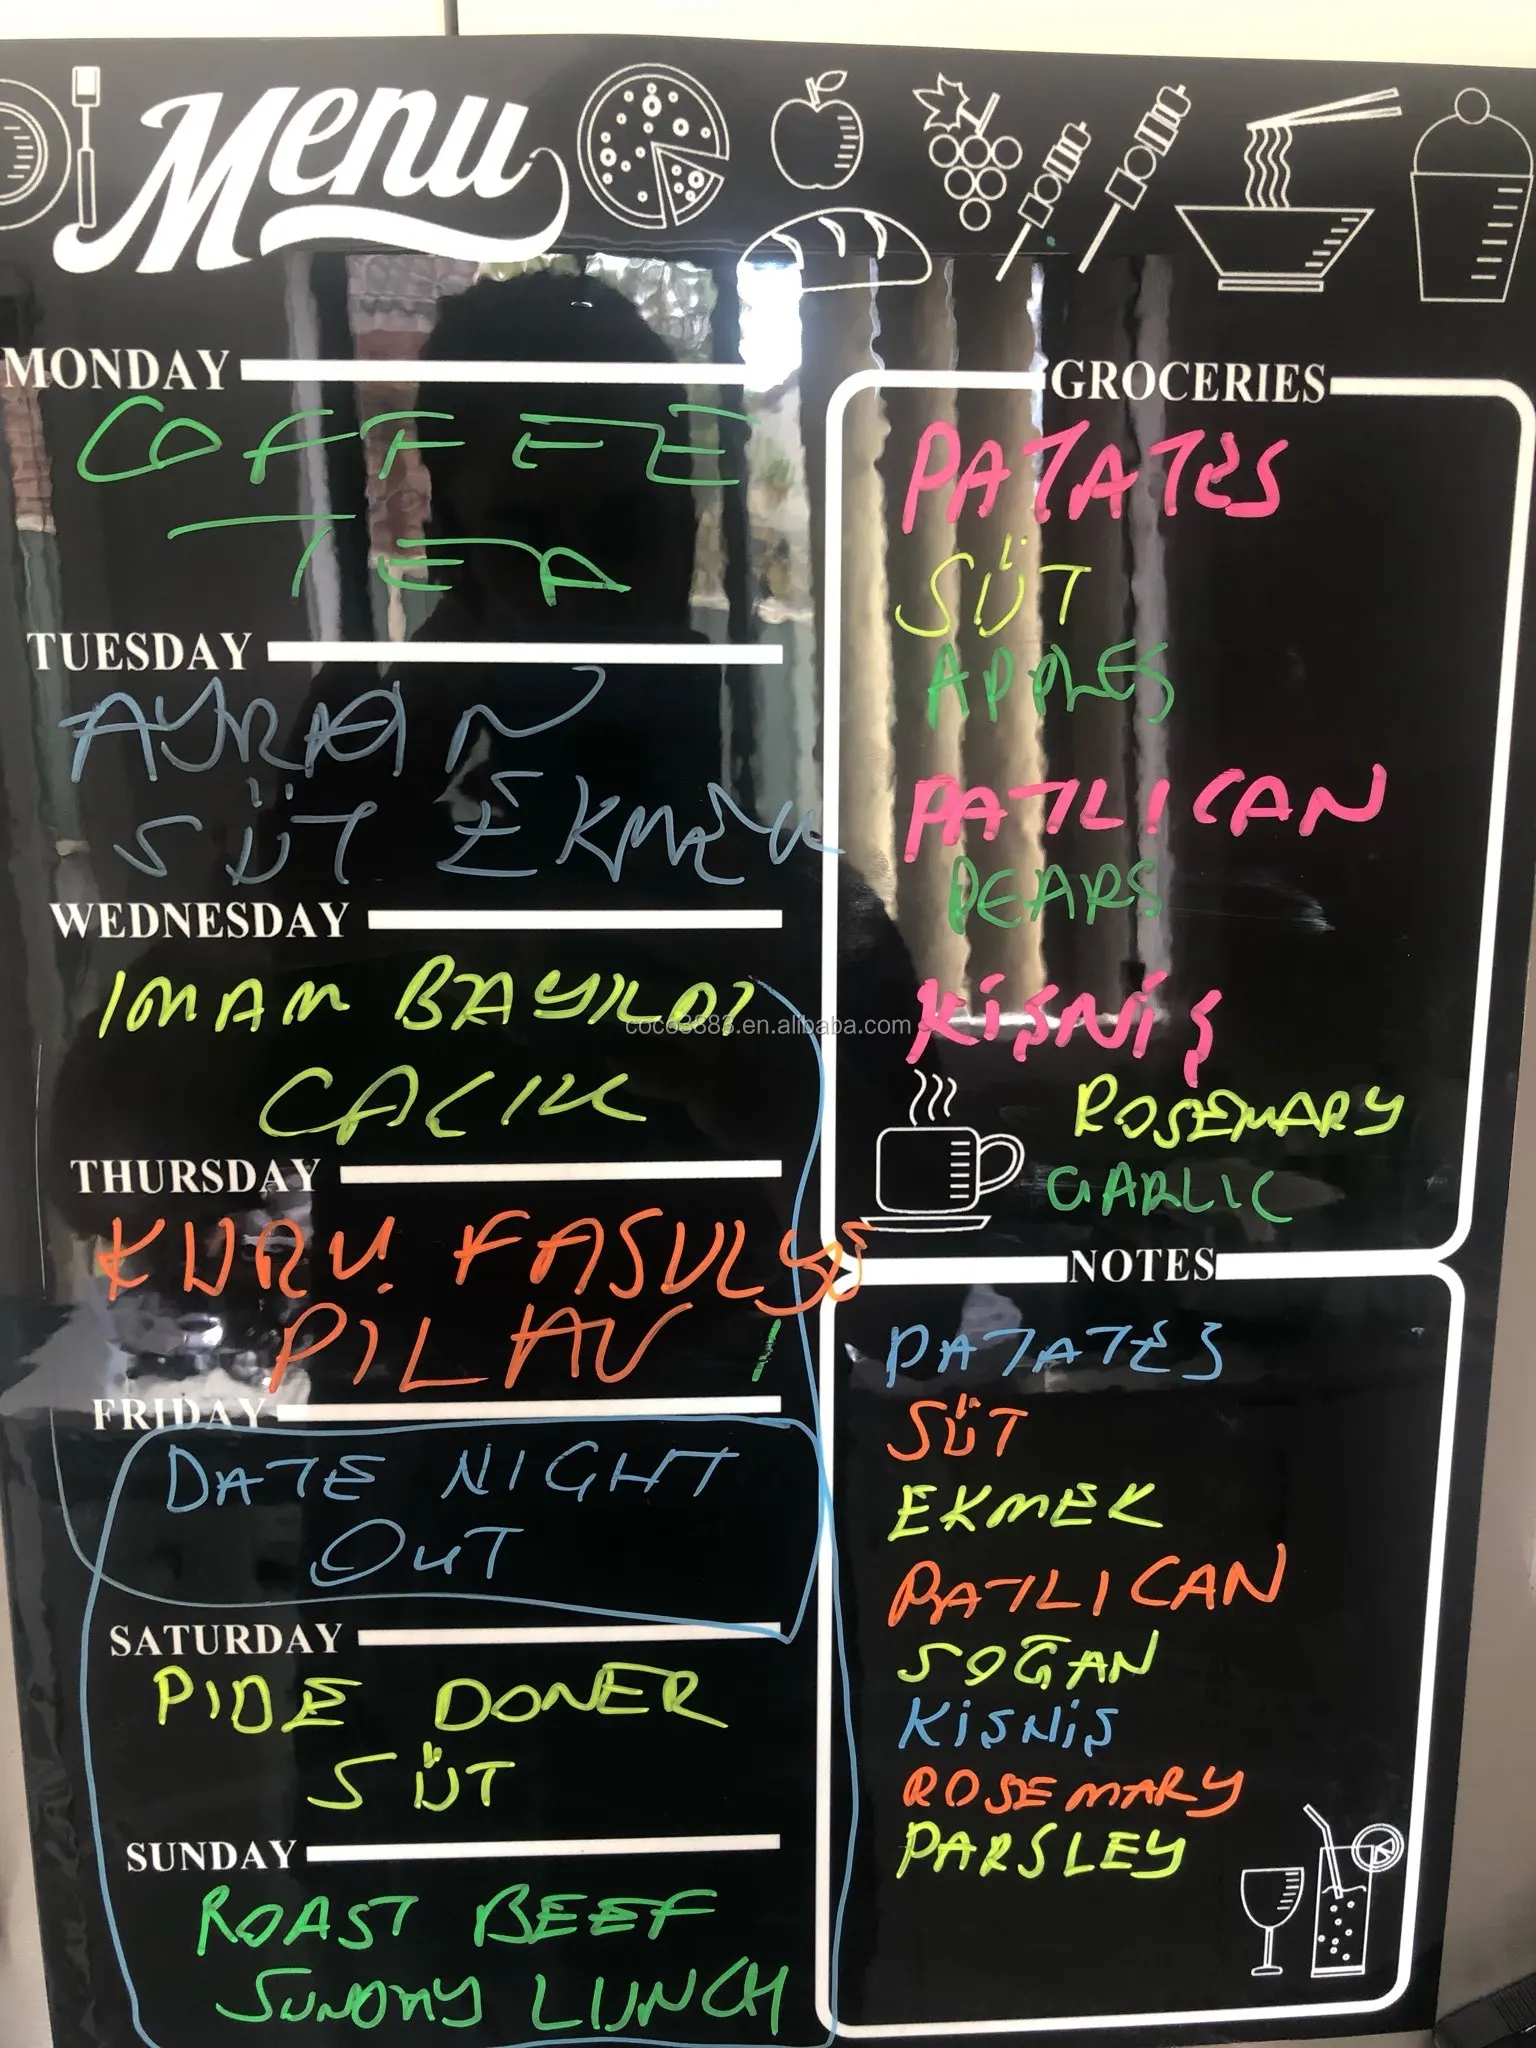 Menu
MONDAY
COFFEE
TEA
TUESDAY
AYRAN
SÜT EKMEK
WEDNESDAY
IMAM BAYILDI
CACIK
THURSDAY
KURU FASULYE
PILAV
FRIDAY
DATE NIGHT
OUT
SATURDAY
PIDE DONER
SÜT
SUNDAY
ROAST BEEF
SUNDAY LUNCH
GROCERIES
PATATES
SÜT
APPLES
PATLICAN
PEARS
KİŞNİŞ
ROSEMARY
GARLIC
NOTES
PATATES
SÜT
EKMEK
PATLICAN
SOĞAN
KİŞNİŞ
ROSEMARY
PARSLEY
coco3883.en.alibaba.com